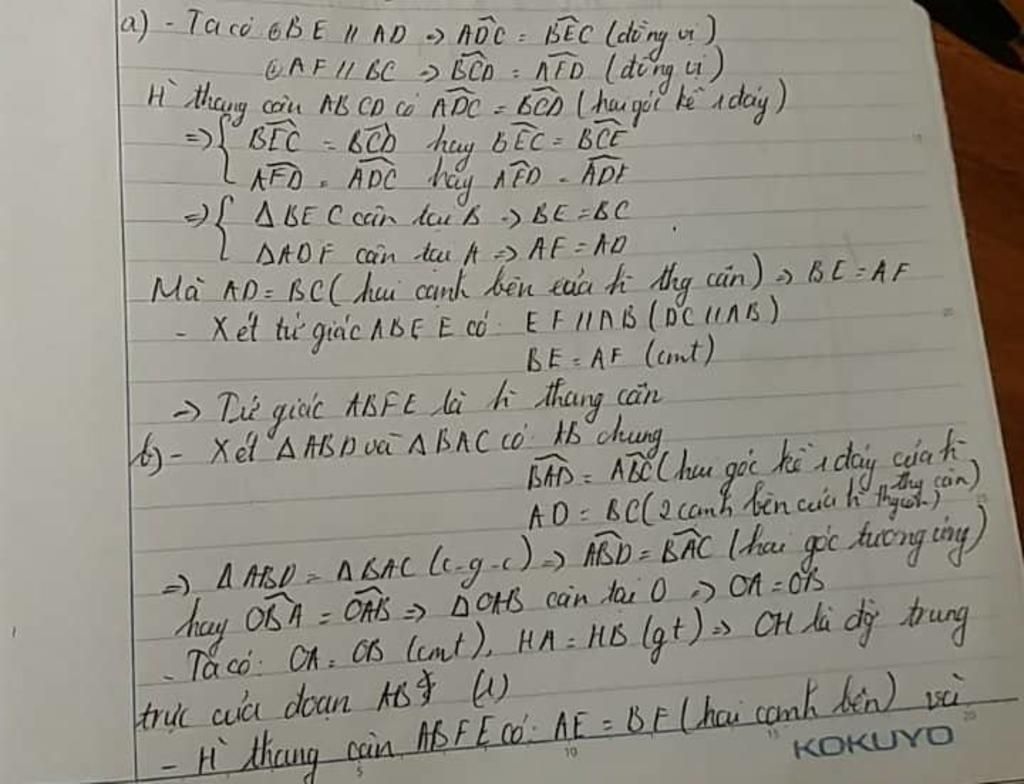 a) - Ta có ⊕ BE // AD → ADC = BEC (đồng vị)
⊕ AF // BC → BCD = AFD (đồng vị)
H̀ thang cân ABCD có ADC = BCD (hai góc kề 1 đáy)
=> { BEC = BCD hay BEC = BCE
AFD = ADC hay AFD = ADF
=> { Δ BEC cân tại B → BE = BC
Δ ADF cân tại A => AF = AD
Mà AD = BC (hai cạnh bên của h̀ thg cân) => BE = AF
- Xét tứ giác ABFE có EF // AB (DC // AB)
BE = AF (cmt)
→ Tứ giác ABFE là h̀ thang cân
b) - Xét Δ ABD và Δ BAC có AB chung
BAD = ABC (hai góc kề 1 đáy của h̀ thg cân)
AD = BC (2 cạnh bên của h̀ thg cân)
=> Δ ABD = Δ BAC (c-g-c) => ABD = BAC (hai góc tương ứng)
hay OBA = OAB => Δ OAB cân tại O → OA = OB
- Ta có: OA = OB (cmt), HA = HB (gt) => OH là đg̀ trung
trực của đoạn AB (1)
- H̀ thang cân ABFE có: AE = BF (hai cạnh bên) và
KOKUYO
5 10 15 20